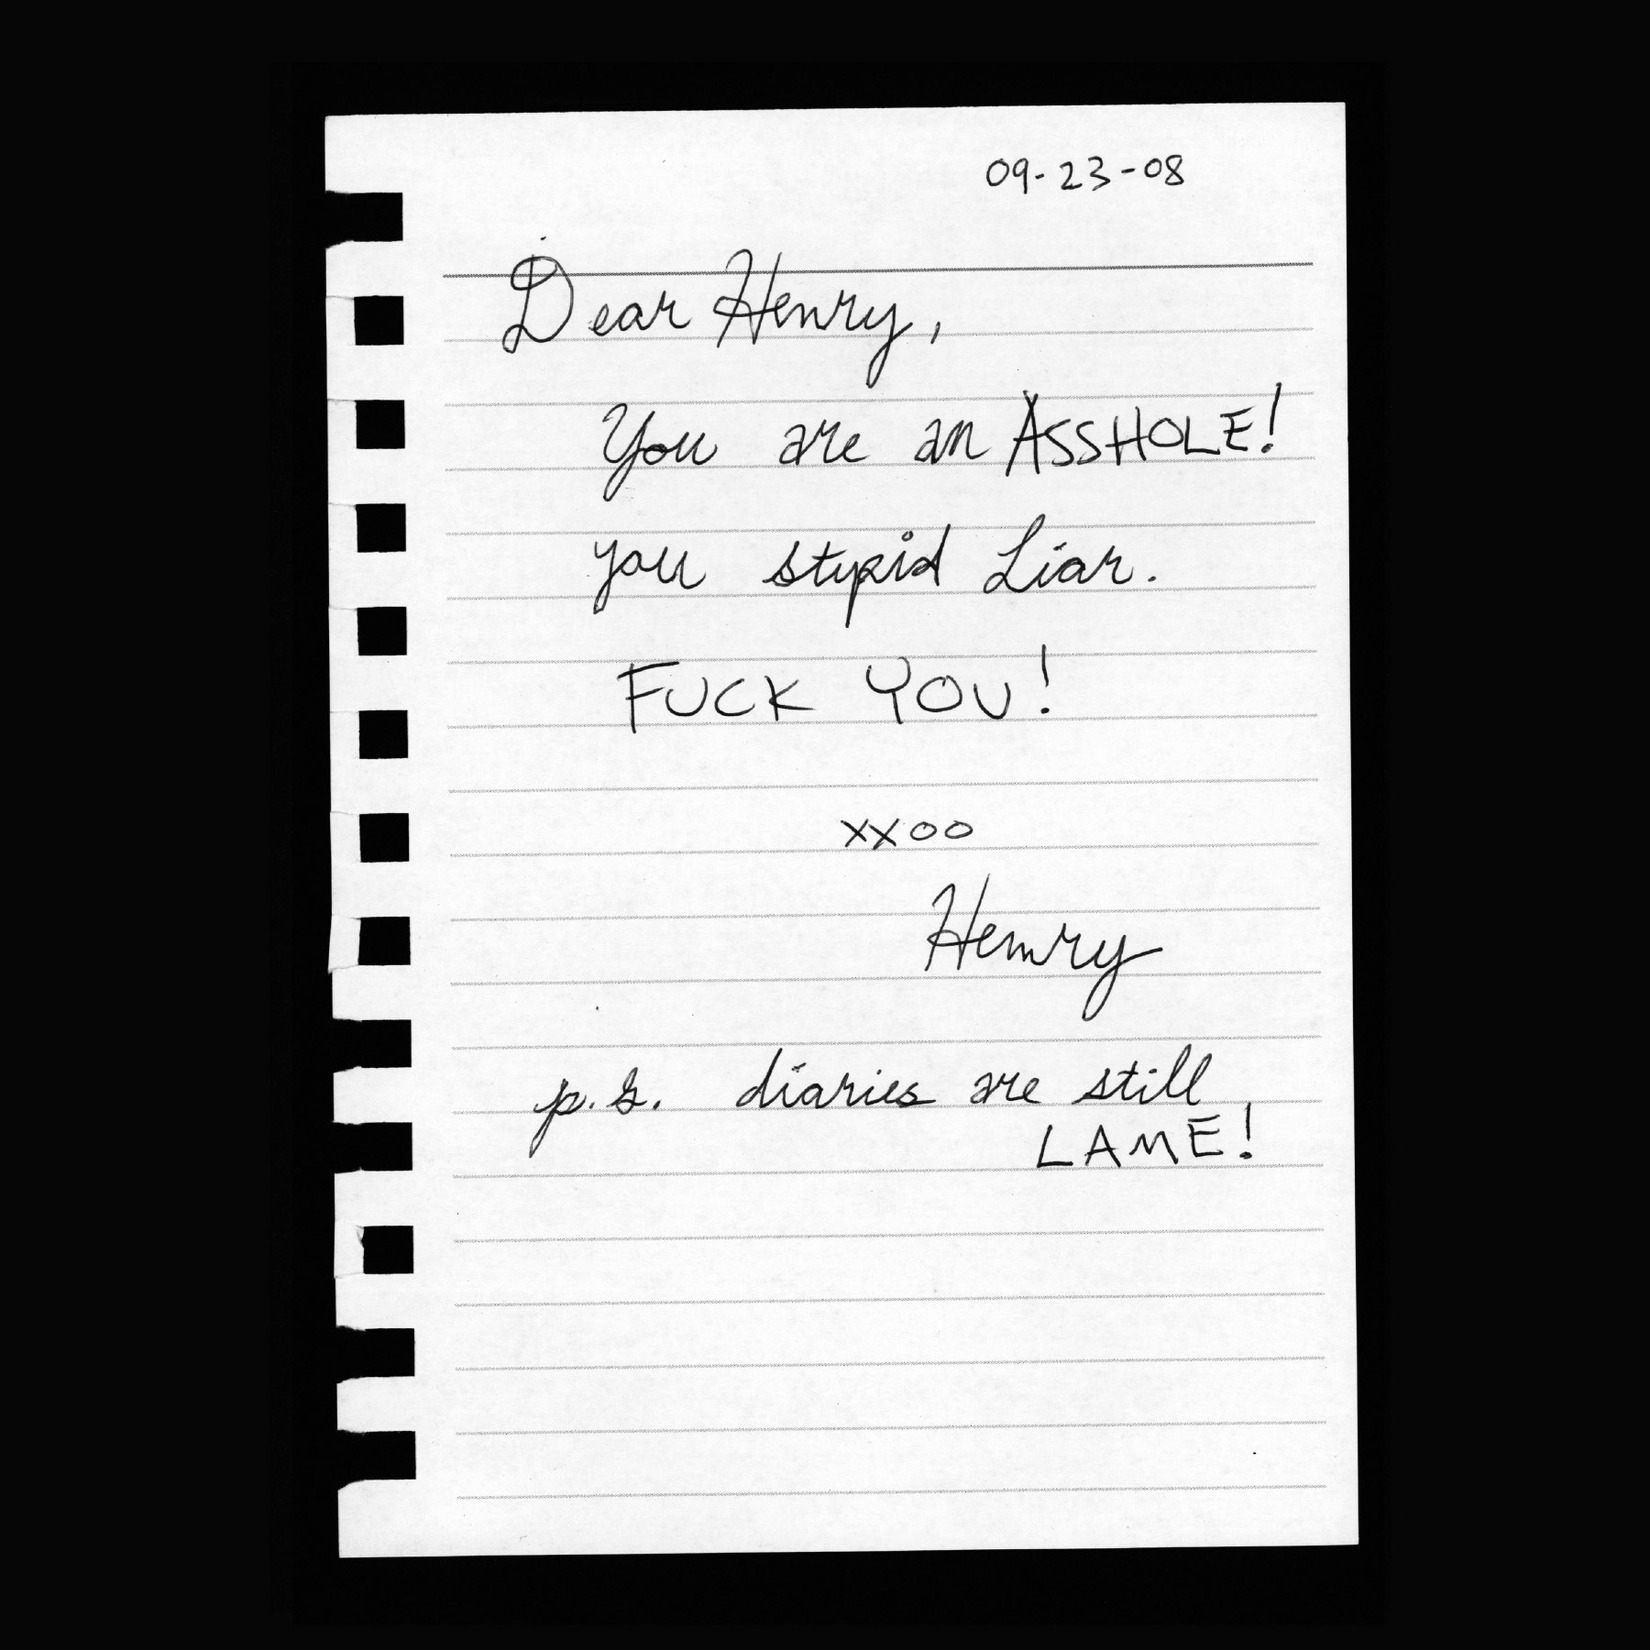 09-23-08
Dear Henry,
You are an ASSHOLE!
you stupid Liar.
FUCK YOU!
xxoo
Henry
p.s. diaries are still
LAME!